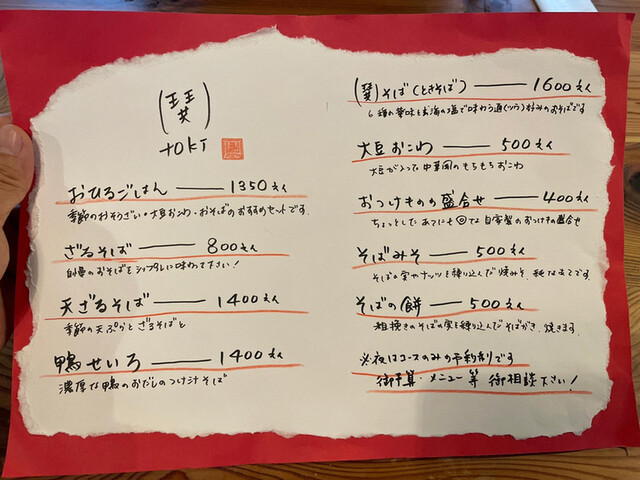 TOKI
おひるごはん 1350えん
季節のおそうざい・大豆おこわ・おそばのおすすめセットです。
ざるそば 800えん
自慢のおそばをシンプルに味わって下さい!
天ざるそば 1400えん
季節の天ぷらとざるそばと
鴨せいろ 1400えん
濃厚な鴨のおだしのつけ汁そば
そば(ときそば) 1600えん
6種の薬味とお海の塩で味わう通(つう)好みのおそばです
大豆おこわ 500えん
大豆が入った中華風のもちもちおこわ
おつけもの盛合せ 400えん
ちょっとしたあてにも◎な自家製のおつけもの盛合せ
そばみそ 500えん
そばの実やナッツを練り込んだ焼みそ。
そばの餅 500えん
粗挽きのそばの実を練り込んだそばがき、焼きます。
※夜はコースのみの予約制です
御予算・メニュー等 御相談下さい!